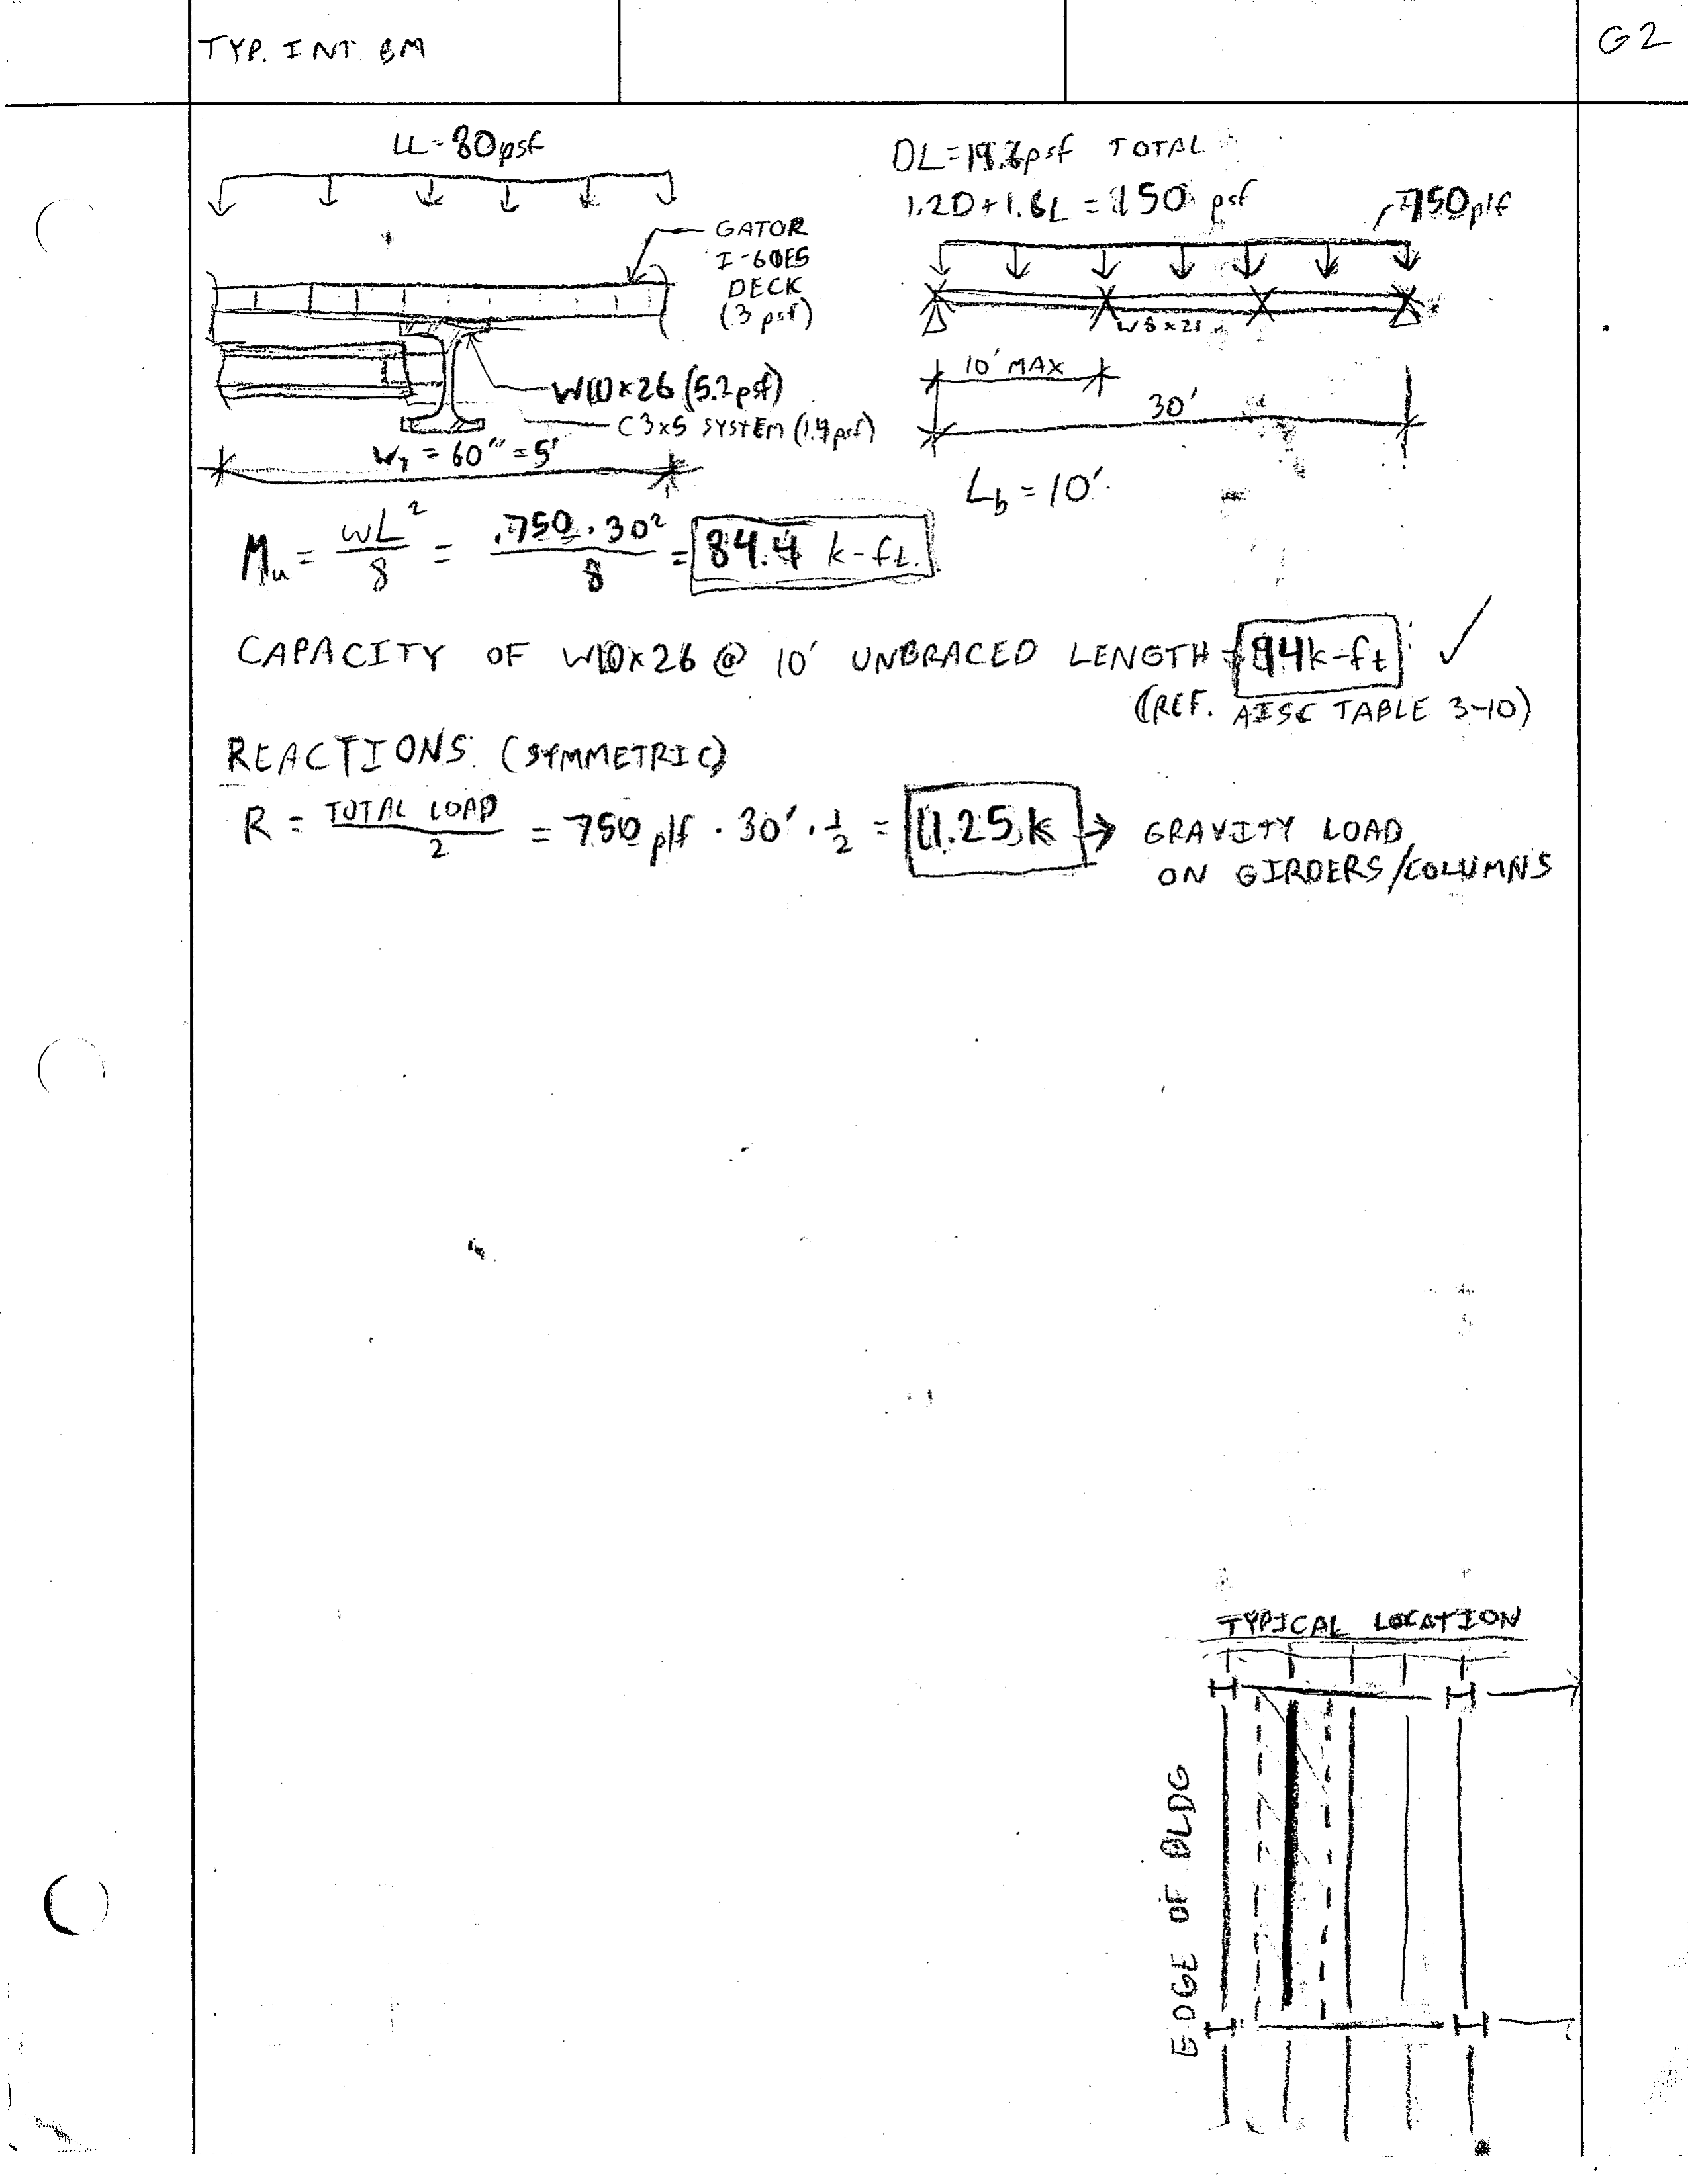 TYP. INT. BM
G2
LL = 80 psf
GATOR
I-60ES
DECK
(3 psf)
W10x26 (5.2 psf)
C3x5 SYSTEM (1.4 psf)
W_T = 60" = 5'
DL = psf TOTAL
1.2D + 1.6L = 150 psf
750 plf
W8x21
10' MAX
30'
L_b = 10'
M_u = wL²/8 = .750 · 30²/8 = 84.4 k-ft.
CAPACITY OF W10x26 @ 10' UNBRACED LENGTH = 94 k-ft ✓
(REF. AISC TABLE 3-10)
REACTIONS: (SYMMETRIC)
R = TOTAL LOAD/2 = 750 plf · 30' · 1/2 = 11.25 k → GRAVITY LOAD
ON GIRDERS/COLUMNS
TYPICAL LOCATION
EDGE OF BLDG